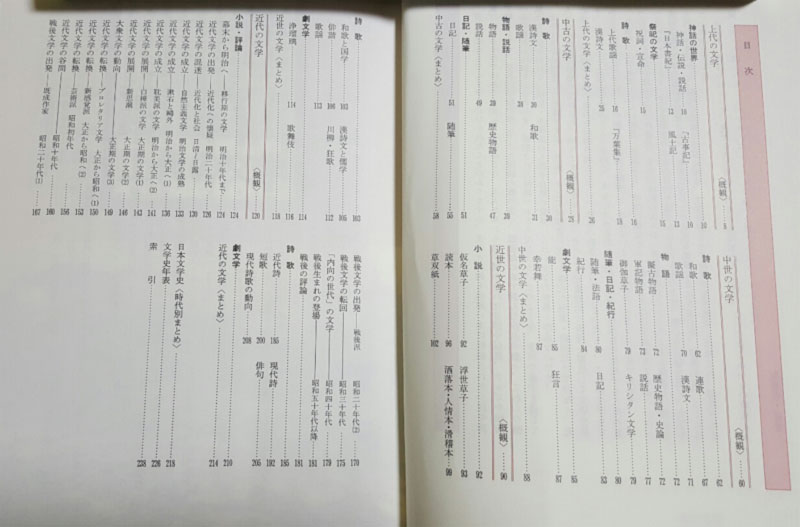 目次
上代の文学〈概観〉
神話の世界 10
神話・伝説・説話 10 『古事記』
『日本書紀』 風土記
祭祀の文学 15
祝詞・宣命 15
詩歌 16
上代歌謡 16 『万葉集』
漢詩文 25
上代の文学〈まとめ〉 26
中古の文学〈概観〉 28
詩歌
漢詩文 30 和歌
歌謡
物語・説話
物語 歴史物語 47
説話 49
日記・随筆 51
日記 51 随筆 55
中古の文学〈まとめ〉 58
中世の文学〈概観〉 60
詩歌 62
和歌 62 連歌 67
歌謡 70 漢詩文 71
物語 72
擬古物語 72 歴史物語・史論 72
軍記物語 73 説話 77
御伽草子 79 キリシタン文学 79
随筆・日記・紀行 80
随筆・法語 80 日記 83
紀行 84
劇文学 85
能 85 狂言 87
幸若舞 87
中世の文学〈まとめ〉 88
近世の文学〈概観〉 90
小説 92
仮名草子 92 浮世草子 93
読本 96 洒落本・人情本・滑稽本 99
草双紙 102
詩歌 103
和歌と国学 103 漢詩文と儒学 105
俳諧 106 川柳・狂歌 112
歌謡 113
劇文学 114
浄瑠璃 114 歌舞伎 116
近世の文学〈まとめ〉 118
近代の文学〈概観〉 120
小説・評論 124
幕末から明治へ 移行期の文学 明治十年代まで 124
近代文学の出発 近代化への懐疑 明治二十年代 126
近代文学の混迷 近代化と社会 日清―日露 130
近代文学の成立 自然主義文学 明治文学の成熟 133
近代文学の成立 漱石と鷗外 明治から大正へ(1) 136
近代文学の成立 耽美派の文学 明治から大正へ(2) 141
近代文学の展開 白樺派の文学 大正期の文学(1) 143
近代文学の展開 新思潮 大正期の文学(2) 146
大衆文学の動向 大正期の文学(3) 149
近代文学の転換 プロレタリア文学 大正から昭和へ(1) 150
近代文学の転換 新感覚派 大正から昭和へ(2) 152
近代文学の転換 芸術派 昭和初年代 156
近代文学の谷間 昭和十年代 160
戦後文学の出発 既成作家 昭和二十年代(1) 167
戦後文学の出発 戦後派 昭和二十年代(2) 170
戦後文学の転回 昭和三十年代 175
「内向の世代」の文学 昭和四十年代 179
戦後生まれの登場 昭和五十年代以降 181
戦後の評論 181
詩歌 185
近代詩 185 現代詩 192
短歌 200 俳句 205
現代詩歌の動向 208
劇文学 210
近代の文学〈まとめ〉 214
日本文学史〈時代別まとめ〉 218
文学史年表 226
索引 238